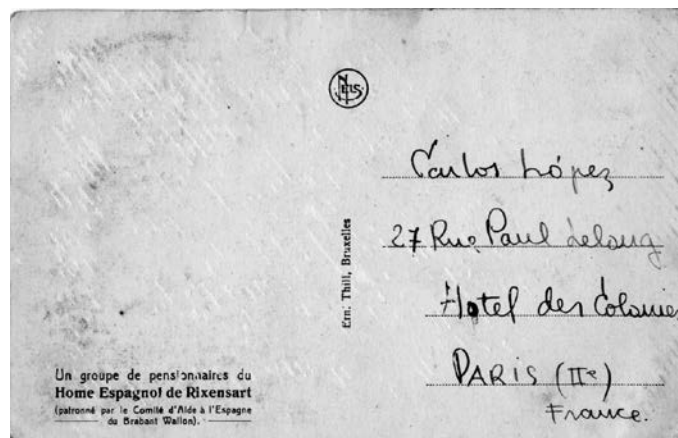 NELS
Carlos López
27 Rue Paul Lelong
Hotel des Colonies
PARIS (IIe)
France.
Ern. Thill, Bruxelles
Un groupe de pensionnaires du
Home Espagnol de Rixensart
(patronné par le Comité d'Aide à l'Espagne
du Brabant Wallon).